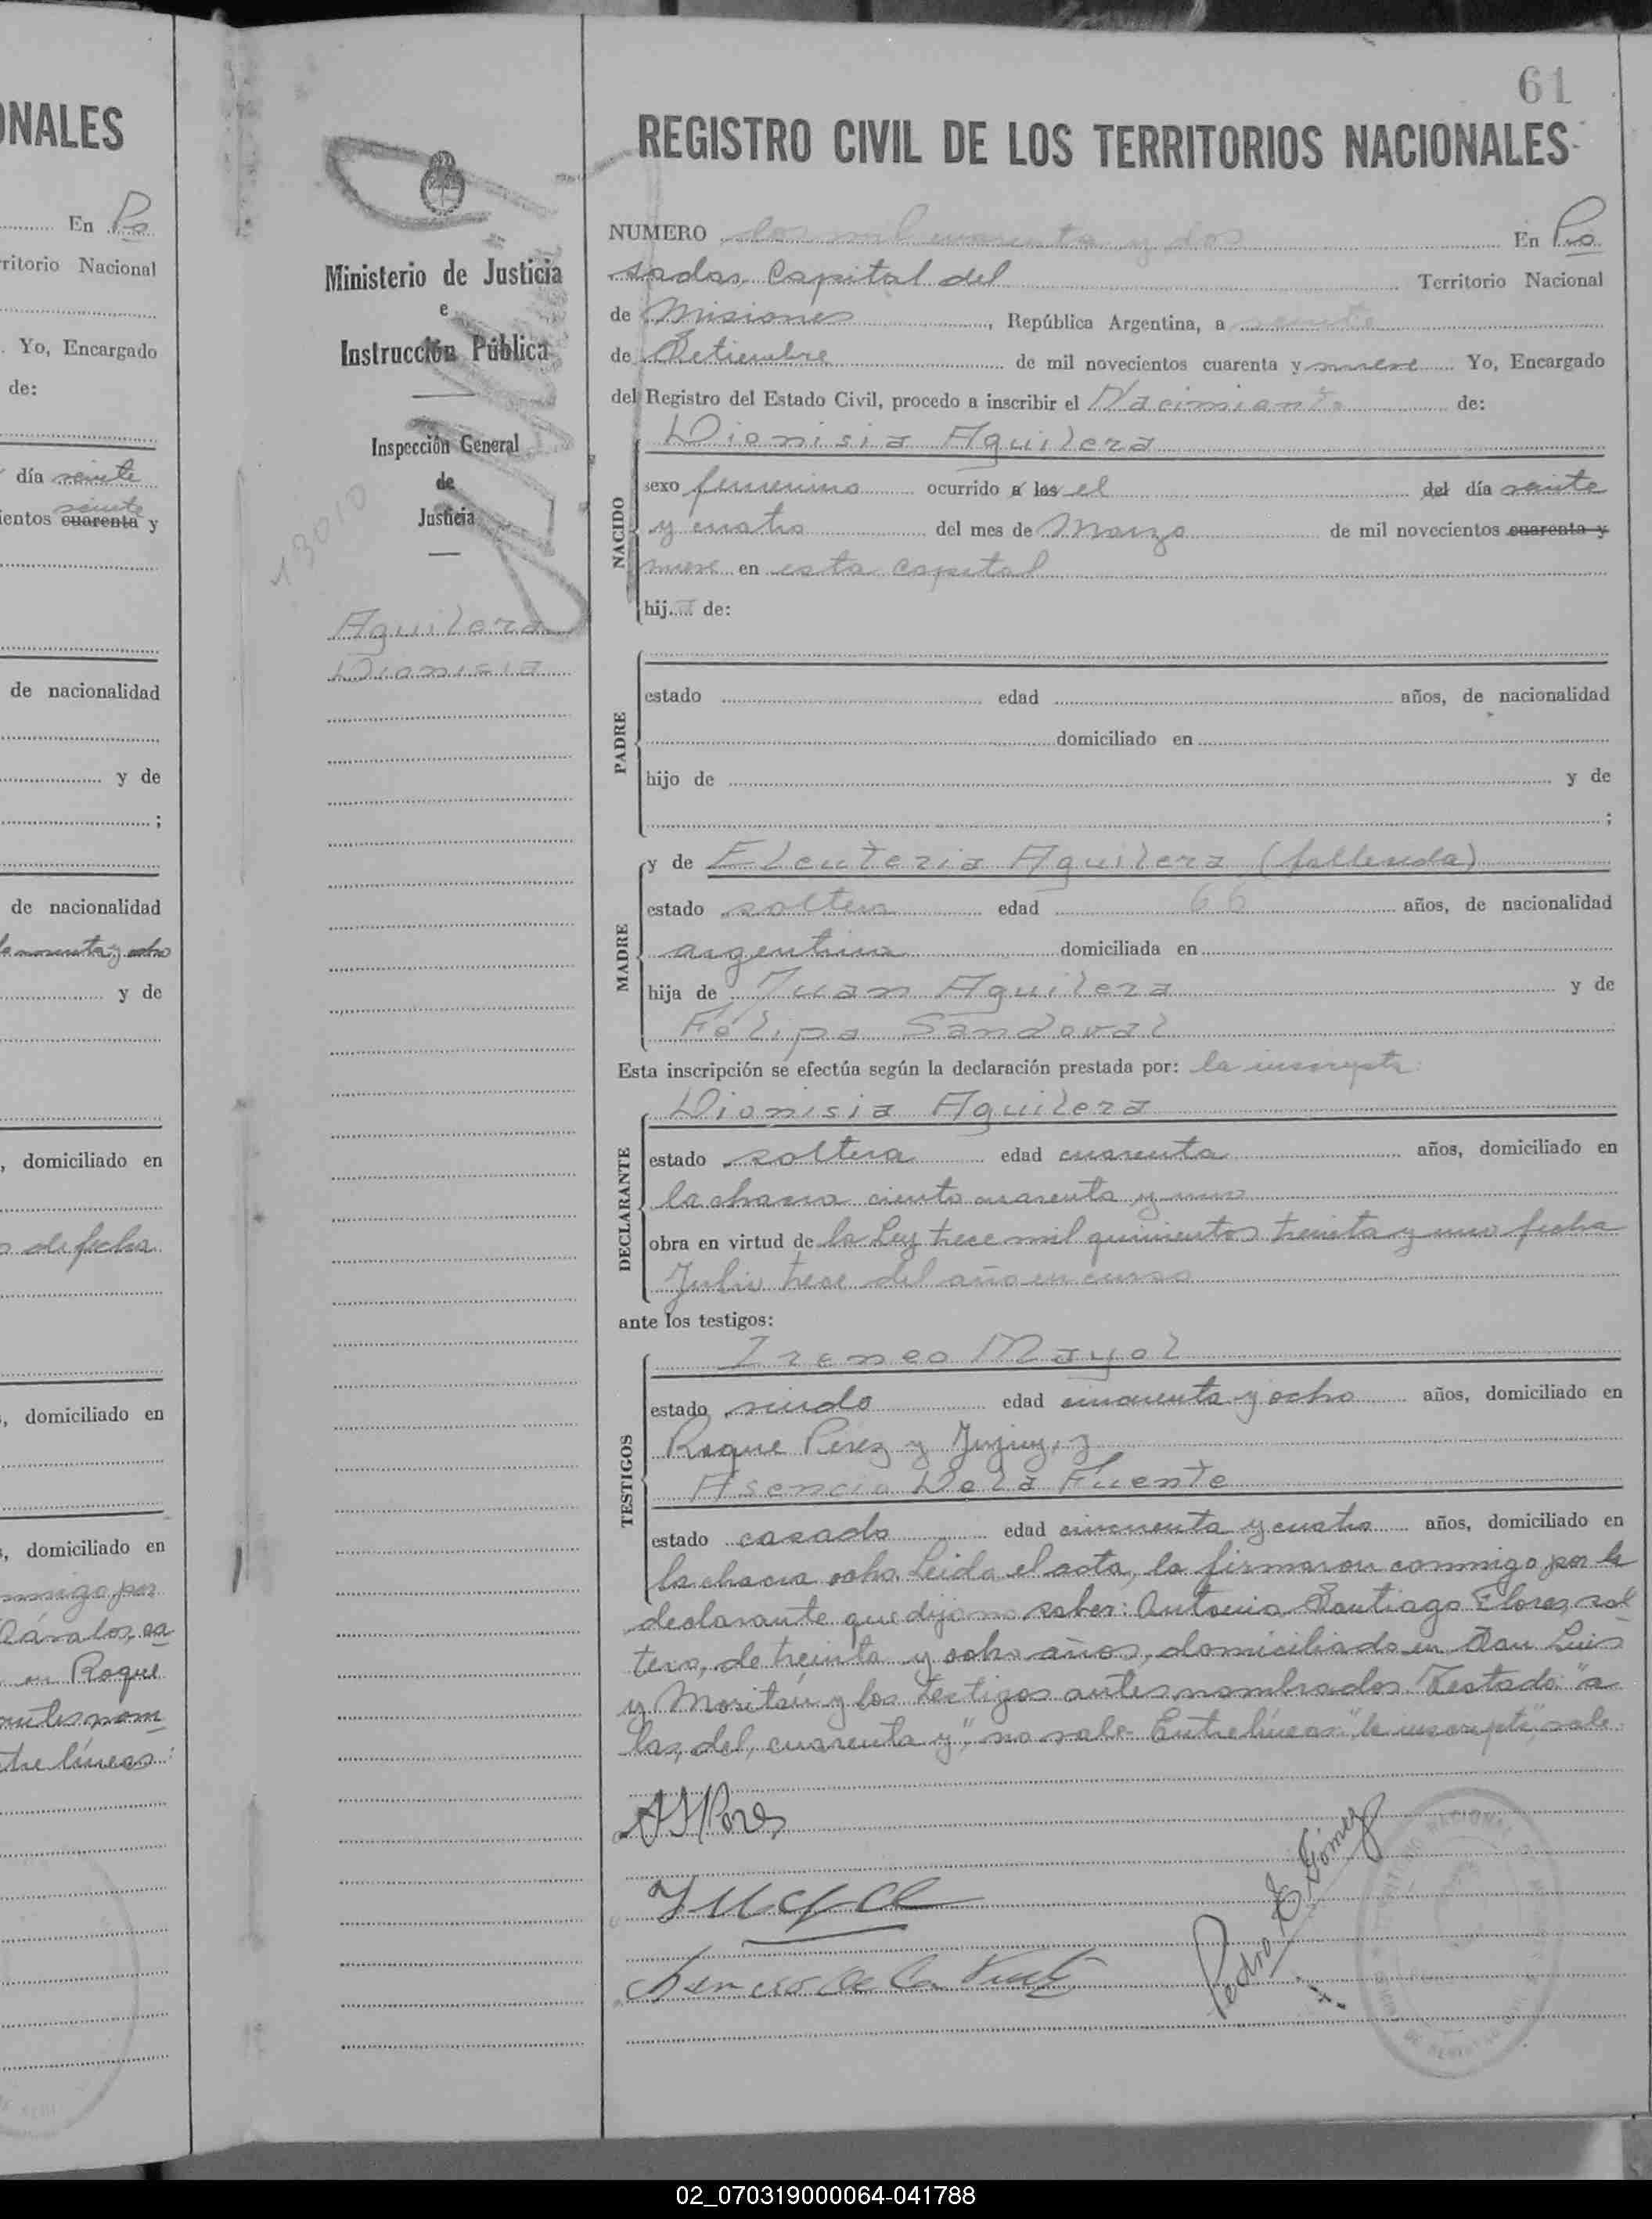 61
ONALES
REGISTRO CIVIL DE LOS TERRITORIOS NACIONALES
En Po
ritorio Nacional
Yo, Encargado
de:
día veinte
veinte
ientos cuarenta y
de nacionalidad
y de
;
de nacionalidad
y ocho
y de
, domiciliado en
de fecha
, domiciliado en
, domiciliado en
nmigo, por
en Roque
antes nom
tre líneas:
Ministerio de Justicia
e
Instrucción Pública
Inspección General
de
Justicia
13010
Aguilera
Dionisia
NUMERO dos mil cuarenta y dos En Po
sadas, Capital del Territorio Nacional
de Misiones, República Argentina, a veinte
de Setiembre de mil novecientos cuarenta y nueve Yo, Encargado
del Registro del Estado Civil, procedo a inscribir el Nacimiento de:
Dionisia Aguilera
NACIDO
sexo femenino ocurrido a las el del día veinte
y cuatro del mes de Marzo de mil novecientos cuarenta y
nueve en esta Capital
hija de:
PADRE
estado edad años, de nacionalidad
domiciliado en
hijo de y de
;
MADRE
y de Eleuteria Aguilera (fallecida)
estado soltera edad 66 años, de nacionalidad
argentina domiciliada en
hija de Juan Aguilera y de
Felipa Sandoval
Esta inscripción se efectúa según la declaración prestada por: la inscripta
DECLARANTE
Dionisia Aguilera
estado soltera edad cuarenta años, domiciliado en
la chacra ciento cuarenta y uno
obra en virtud de la Ley trece mil quinientos treinta y uno fecha
Julio trece del año en curso
ante los testigos:
TESTIGOS
Ireneo Mayol
estado viudo edad cincuenta y ocho años, domiciliado en
Roque Perez y Jujuy, y
Asencio De la Fuente
estado casado edad cincuenta y cuatro años, domiciliado en
la chacra ocho. Leida el acta, la firmaron conmigo por la
declarante que dijo no saber: Antonio Santiago Flores, sol
tero, de treinta y ocho años, domiciliado en San Luis
y Moritán y los testigos antes nombrados. Testado: "a
las, del, cuarenta y", no vale- Entrelíneas: "la inscripta", vale.
ASFlores
Asencio de la Fuente
Pedro E Gómez
02_070319000064-041788